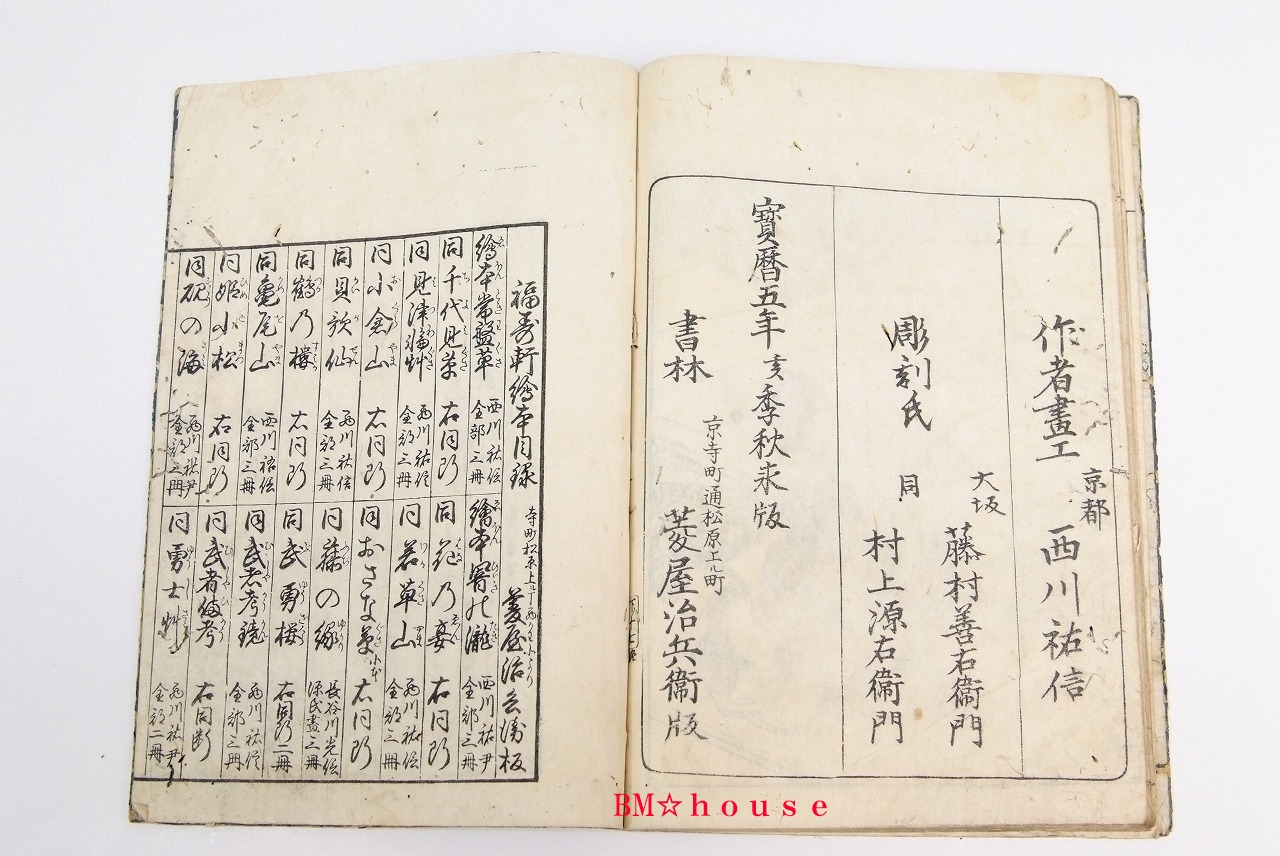 作者畫工 京都 西川祐信
彫刻氏 大坂 藤村善右衞門
同 村上源右衞門
寳暦五年亥季秋求版
書林 京寺町通松原上ル町 菱屋治兵衞版
福寿軒繪本目録 寺町松原上ル丁 菱屋治兵衛板
繪本常盤草 西川祐信 全部三冊
同千代見草 右同断
同貝歌仙 西川祐信 全部三冊
同鶴乃棲 右同断
同亀尾山 西川祐信 全部三冊
同姫小松 右同断
同硯の海 西川祐尹 全部三冊
西川祐尹 全部三冊
同花乃宴 右同断
同若草山 西川祐信 全部三冊
同おさな草 右同断
同藤の縁 長谷川光信
同武勇桜 右同断 二冊
同武者考鏡 西川祐信 全部三冊
同武者備考 右同断
同勇士艸 西川祐尹 全部二冊
BM☆house